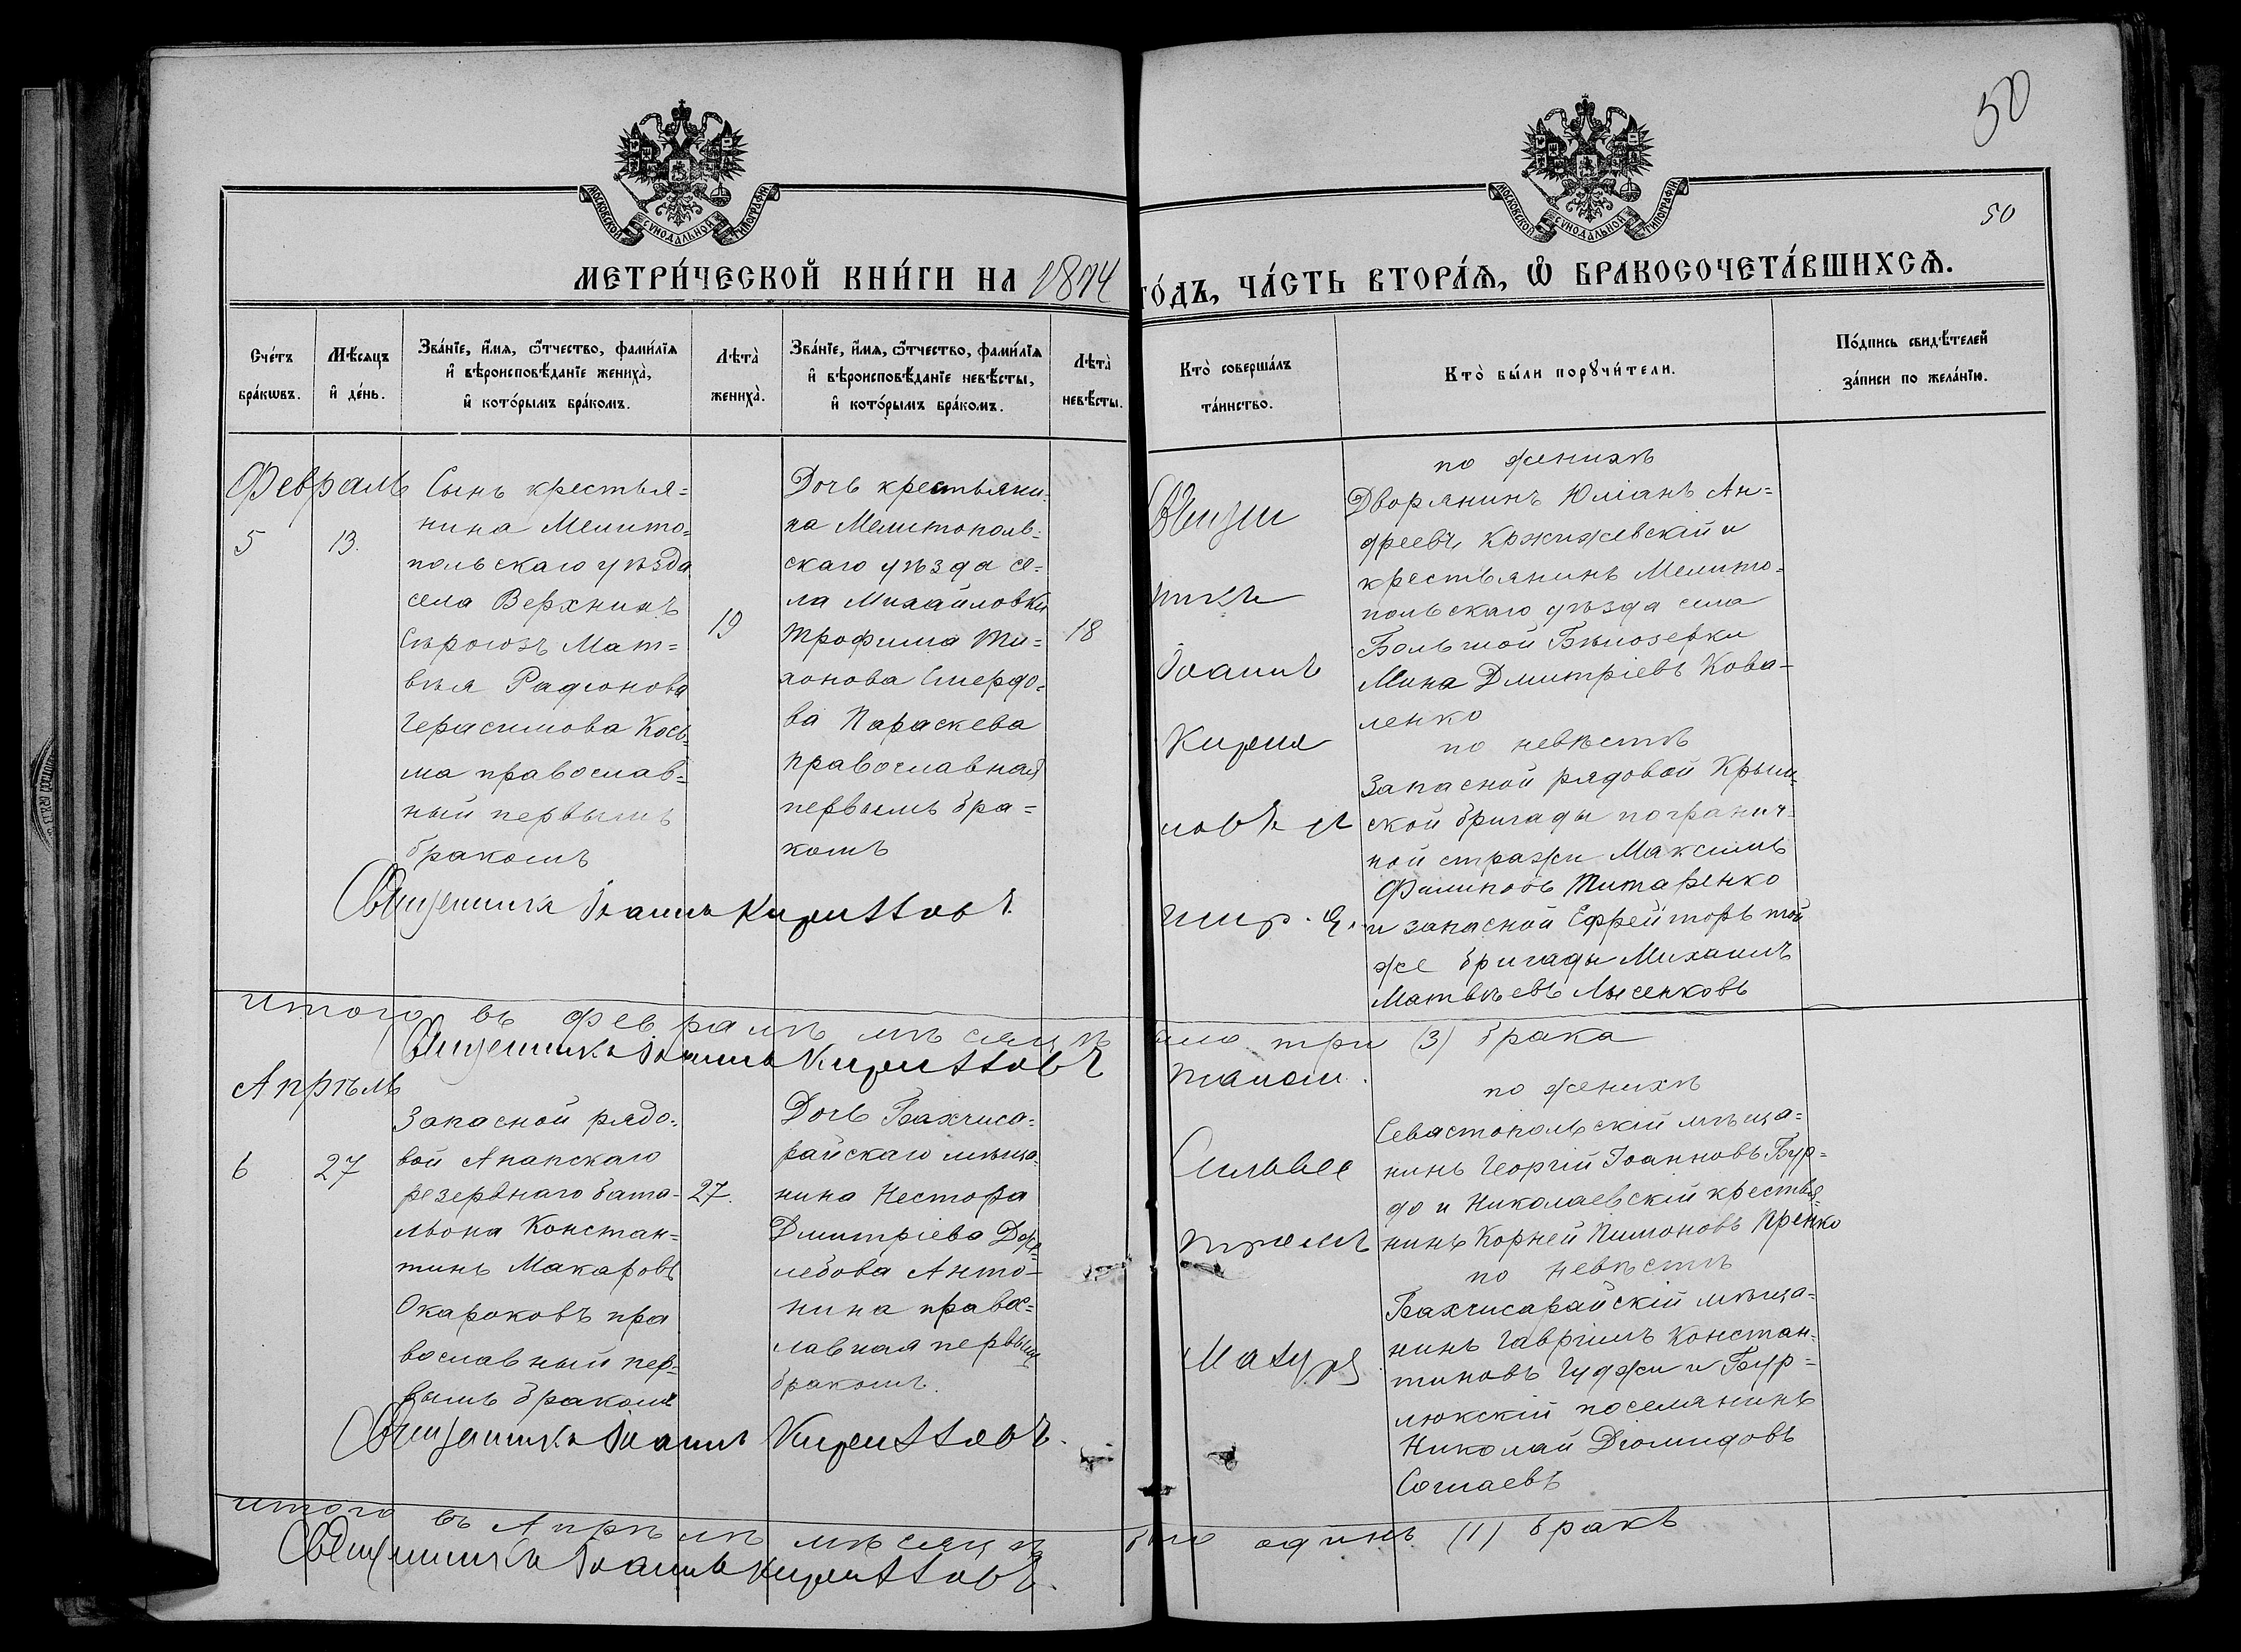 50
МОСКОВСКОЙ СѴНОДАЛЬНОЙ ТИПОГРАФІИ
МОСКОВСКОЙ СѴНОДАЛЬНОЙ ТИПОГРАФІИ
50
МЕТРИ́ЧЕСКОЙ КНИ́ГИ НА
ГО́ДЪ, ЧА́СТЬ ВТОРА́Ѧ, Ѽ БРАКОСОЧЕТА́ВШИХСѦ.
Сче́тъ
бра́кѡвъ.
Мѣ́сяцъ
и҆ де́нь.
Зва́нїе, и҆́мѧ, ѻ҆́тчество, фами́лїѧ
и҆ вѣроисповѣ́данїе жениха̀,
и҆ кото́рымъ бра́комъ.
Лѣта̀
жениха̀.
Зва́нїе, и҆́мѧ, ѻ҆́тчество, фами́лїѧ
и҆ вѣроисповѣ́данїе невѣ́сты,
и҆ кото́рымъ бра́комъ.
Лѣта̀
невѣ́сты.
Кто̀ соверша́лъ
та́инство.
Кто̀ бы́ли порꙋчи́тели.
По́дпись свидѣ́телей
за́писи по жела́нїю.
Февраль
5
13.
Сынъ крестья=
нина Мелито=
польскаго уѣзда
села Верхнихъ
Сѣрогозъ Мат=
вѣя Радіонова
Герасимова Кось=
ма православ=
ный первымъ
бракомъ
19
Дочь крестьяни=
на Мелитополь=
скаго уѣзда се=
ла Михайловки
Трофима Ти=
хонова Смердо=
ва Параскева
православная
первымъ бра=
комъ
18
Іоаннъ
по женихѣ
Дворянинъ Юліанъ Ан=
дреевъ Кржижевскій и
крестьянинъ Мелито=
польскаго уѣзда села
Большой Бѣлозерки
Мина Дмитріевъ Кова-
ленко
по невѣстѣ
Запасной рядовой Крым=
ской бригады погранич=
ной стражи Максимъ
Филиповъ Титаренко
и запасной Ефрейторъ той
же бригады Михаилъ
Матвѣевъ Лысенковъ
Священникъ Іоаннъ
итого въ февралѣ мѣсяцѣ было три (3) брака
Священникъ Іоаннъ
Апрѣль
6
27
Запасной рядо=
вой Анапскаго
резервнаго бата-
льона Констан=
тинъ Макаровъ
Окароковъ пра
вославный пер-
вымъ бракомъ
27.
Дочь Бахчиса=
райскаго мѣща=
нина Нестора
Дмитріева
Анто-
нина правос=
лавная первымъ
бракомъ.
по женихѣ
Севастопольскій мѣща=
нинъ Георгій Іоанновъ Бур=
до и Николаевскій крестья=
нинъ Корней Пимоновъ
по невѣстѣ
Бахчисарайскій мѣща=
нинъ Гавріилъ Констан=
тиновъ Гуджи и Бур=
люкскій поселянинъ
Николай Діомидовъ
Священникъ Іоаннъ
итого въ Апрѣлѣ мѣсяцѣ было одинъ (1) бракъ
Священникъ Іоаннъ